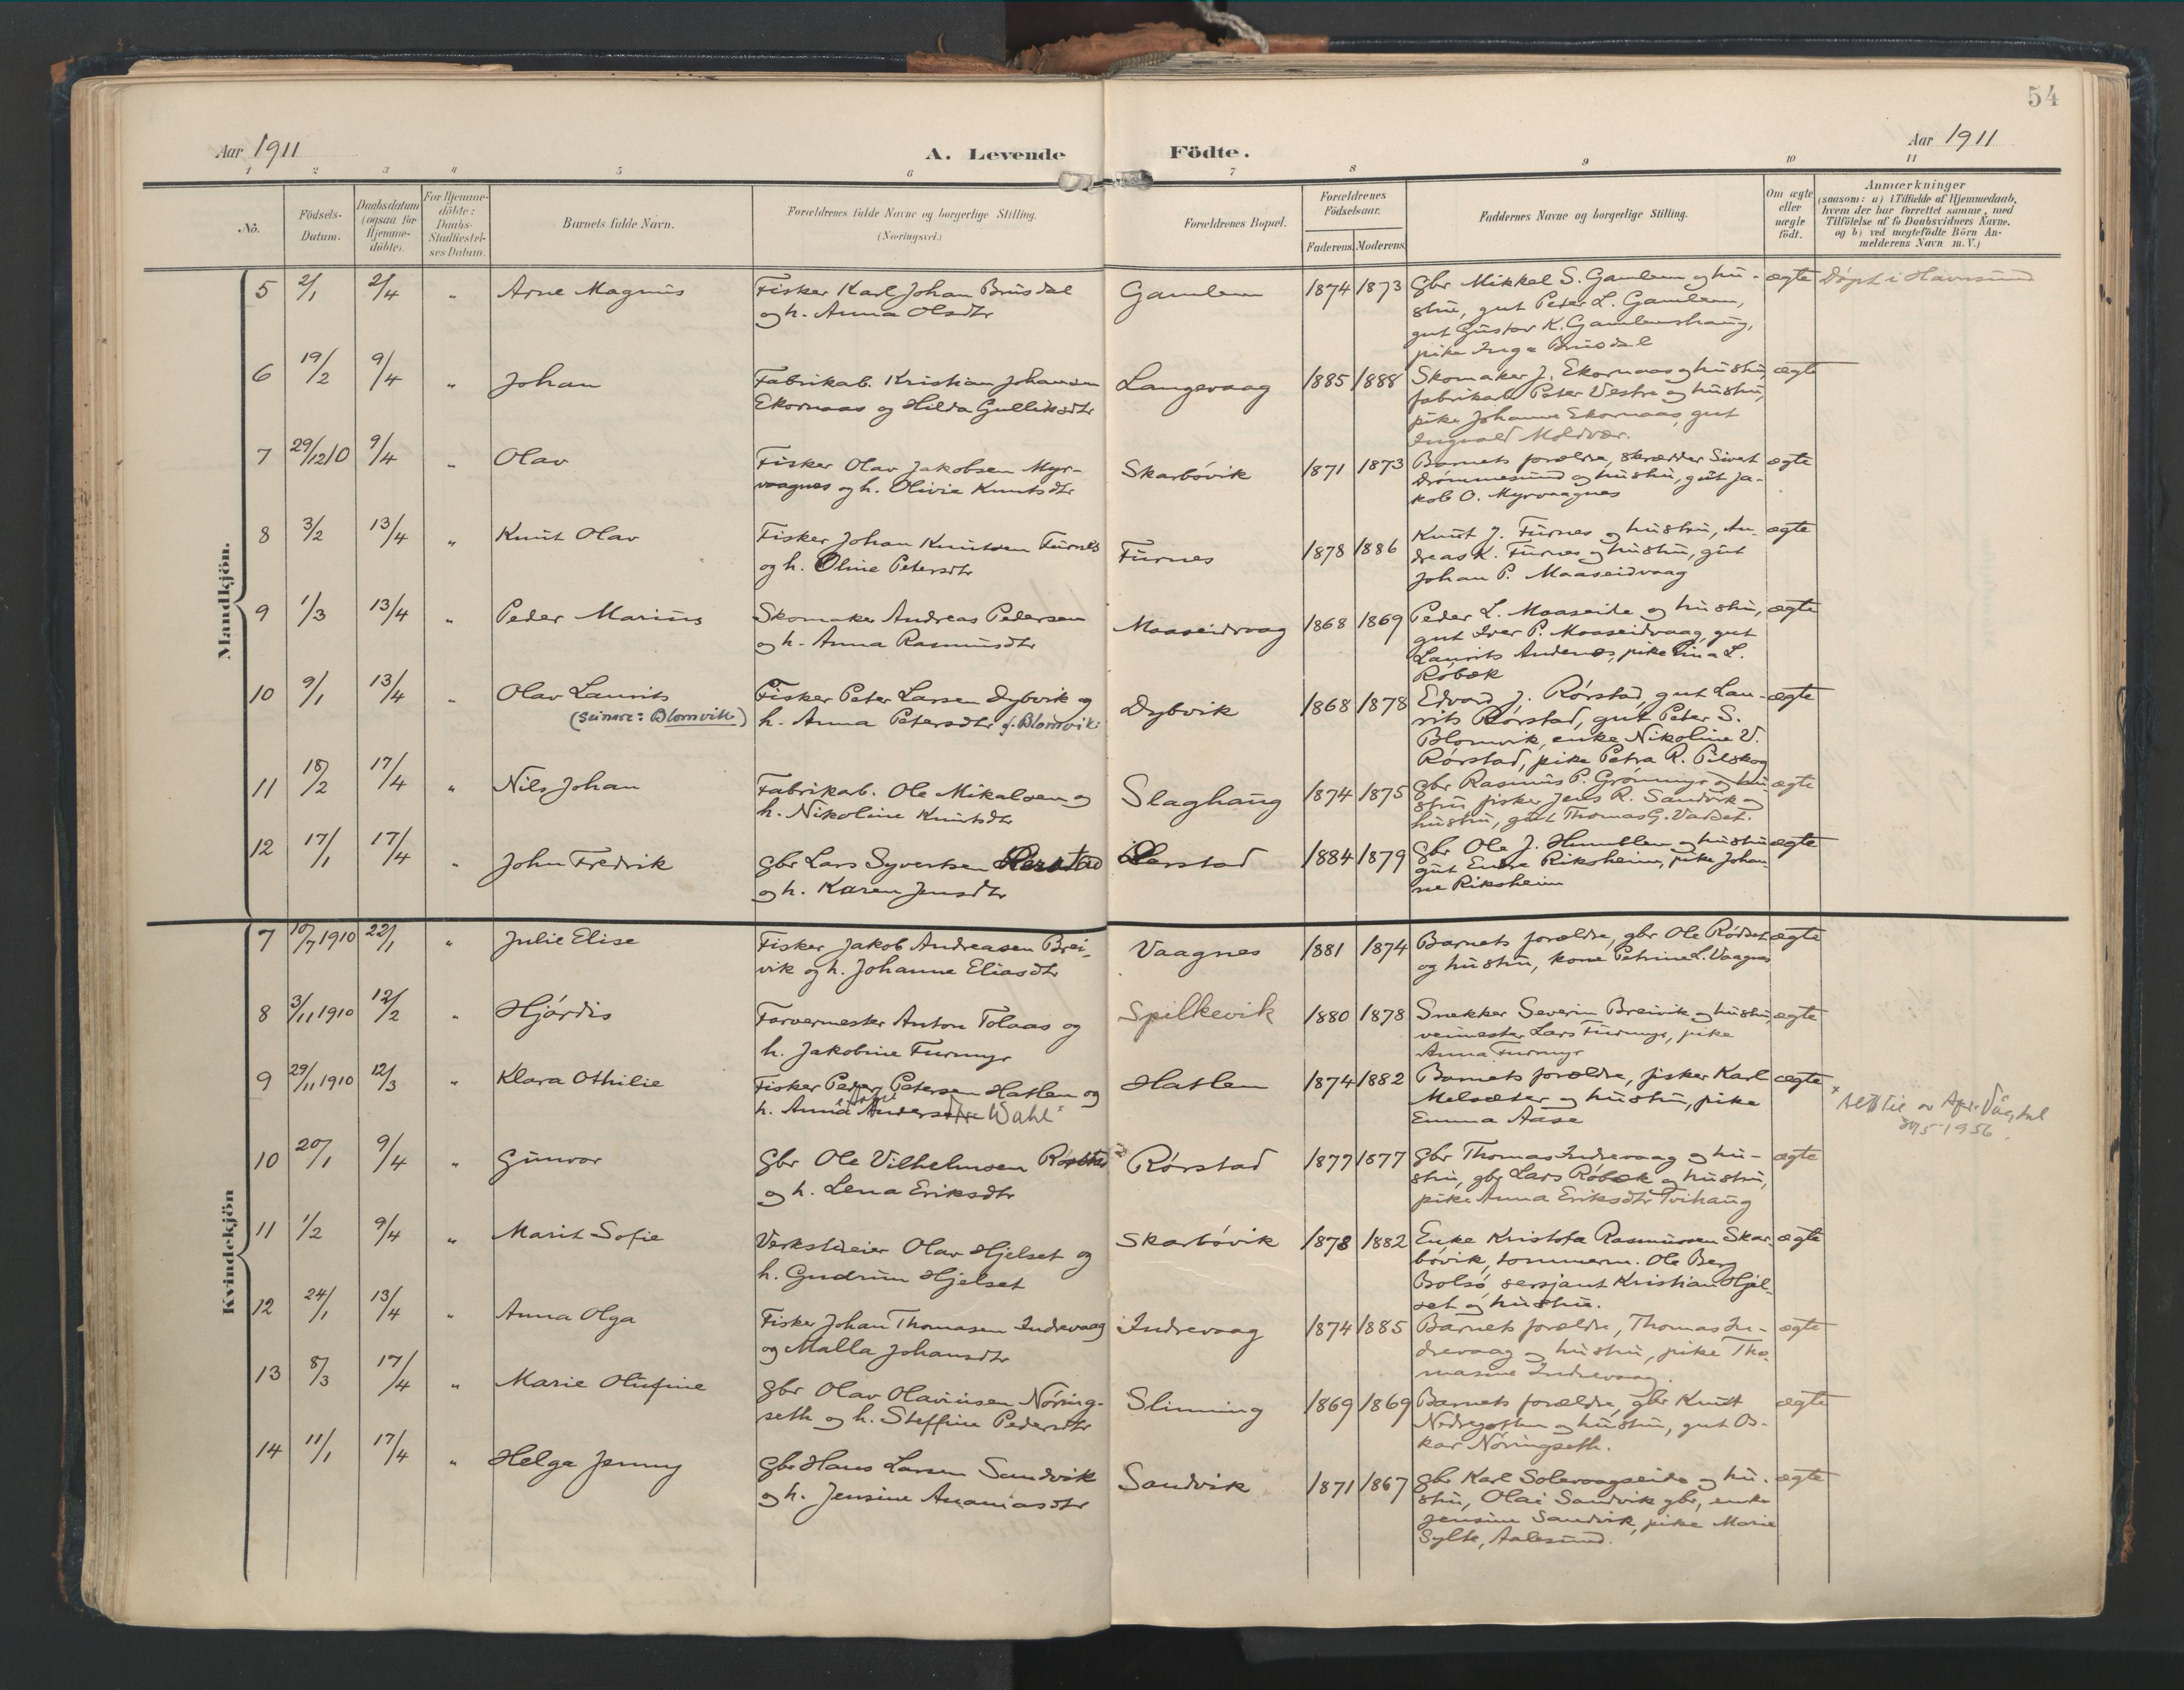 54
Aar 1911
A. Levende Födte.
Aar 1911
1 2 3 4 5 6 7 8 9 10 11
Nö.
Födsels-
Datum.
Daabsdatum
(ogsaa for
Hjemme-
döbte).
For Hjemme-
döbte:
Daabs-
Stadfæstel-
ses Datum.
Barnets fulde Navn.
Forældrenes fulde Navne og borgerlige Stilling.
(Næringsvei.)
Forældrenes Bopæl.
Forældrenes
Födselsaar.
Faderens Moderens
Faddernes Navne og borgerlige Stilling.
Om ægte
eller
uægte
födt.
Anmærkninger
(saasom: a) i Tilfælde af Hjemmedaab,
hvem der har forrettet samme, med
Tilföielse af to Daabsvidners Navne.
og b) ved uægtefödte Börn An-
melderens Navn m. V.)
Mandkjön.
5 2/1 2/4 " Arne Magnus
Fisker Karl Johan Brusdal
og h. Anna Olsdtr
Gamlem 1874 1873
Gbr Mikkel S. Gamlem og hu-
stru, gut Peter L. Gamlem,
gut Gustav K. Gamlemshaug,
pike Inga Brusdal
ægte Döpt i Havnsund
6 19/2 9/4 " Johan
Fabrikab. Kristian Johansen
Ekornaas og Hilda Gulliksdtr
Langevaag 1885 1888
Skomaker J. Ekornaas og hustru,
fabrikab Peter Vestre og hustru,
pike Johanne Ekornaas, gut
Ingvald Moldvær.
ægte
7 29/12 10 9/4 " Olav
Fisker Olav Jakobsen Myr-
vaagnes og h. Olivia Knutsdtr
Skarbövik 1871 1873
Barnets forældre, skrædder Sivert
Drömmesund og hustru, gut Ja-
kob O. Myrvaagnes
ægte
8 3/2 13/4 " Knut Olav
Fisker Johan Knutsen Furnes
og h. Oline Petersdtr
Furnes 1878 1886
Knut J. Furnes og hustru, An-
dreas K. Furnes og hustru, gut
Johan P. Maaseidvaag
ægte
9 1/3 13/4 " Peder Marius
Skomaker Andreas Pedersen
og h. Anna Rasmusdtr
Maaseidvaag 1868 1869
Peder L. Maaseide og hustru,
gut Iver P. Maaseidvaag, gut
Laurits Andenes, pike Lina L.
Röbæk
ægte
10 9/1 13/4 " Olav Laurits
(Seinare: Blomvik)
Fisker Peter Larsen Dybvik og
h. Anna Petersdtr f. Blomvik
Dybvik 1868 1878
Edvard J. Rörstad, gut Lau-
rits Rörstad, gut Peter S.
Blomvik, enke Nikoline V.
Rörstad, pike Petra R. Pilskog
ægte
11 18/2 17/4 " Nils Johan
Fabrikab. Ole Mikalsen og
h. Nikoline Knutsdtr
Slaghaug 1874 1875
Gbr Rasmus P. Grönmyr og hu-
stru fisker Jens R. Sandvik og
hustru, gut Thomas G. Vadset.
ægte
12 17/1 17/4 " John Fredrik
Gbr Lars Syvertsen Rerstad
og h. Karen Jensdtr
Rerstad 1884 1879
Gbr Ole J. Humblen og hustru
gut Endre Riksheim, pike Johan-
ne Riksheim
ægte
Kvindekjön
7 10/7 1910 22/1 " Julie Elise
Fisker Jakob Andreasen Brei-
vik og h. Johanne Eliasdtr
Vaagnes 1881 1874
Barnets forældre, gbr Ole Rödset
og hustru, kone Petrine L. Vaagnes
ægte
8 3/11 1910 12/2 " Hjördis
Farvermester Anton Tolaas og
h. Jakobine Furmyr
Spilkevik 1880 1878
Snekker Severin Breivik og hustru,
veimester Lars Furmyr, pike
Anna Furmyr
ægte
9 29/11 1910 12/3 " Klara Othilie
Fisker Peder Petersen Hatlen og
h. Anna Andersdtr Wahl x
Hatlen 1874 1882
Barnets forældre, fisker Karl
Melsæter og hustru, pike
Emma Aase
ægte
1956.
10 20/1 9/4 " Gunvor
Gbr Ole Vilhelmsen Rörstad
og h. Lena Eriksdtr
Rörstad 1877 1877
Gbr Thomas Indrevaag og hu-
stru, gbr Lars Röbæk og hustru,
pike Anna Eriksdtr Tvihaug
ægte
11 1/2 9/4 " Marit Sofie
Verkstedeier Olav Hjelset og
h. Gudrun Hjelset
Skarbövik 1878 1882
Enke Kristofa Rasmussen Skar-
bövik, tömmerm. Ole Berg
Bolsö, sersjant Kristian Hjel-
set og hustru.
ægte
12 24/1 13/4 " Anna Olga
Fisker Johan Thomasen Indrevaag
og Malla Johansdtr
Indrevaag 1874 1885
Barnets forældre, Thomas In-
drevaag og hustru, pike Tho-
masine Indrevaag.
ægte
13 8/3 17/4 " Marie Olufine
Gbr Olav Olavinsen Nöring-
seth og h. Steffine Pedersdtr
Slinning 1869 1869
Barnets forældre, gbr Knut
Nedregotten og hustru, gut Os-
kar Nöringseth.
ægte
14 11/1 17/4 " Helga Jenny
Gbr Hans Larsen Sandvik
og h. Jensine Ananiasdtr
Sandvik 1871 1867
Gbr Karl Solevaagseide og hu-
stru, Olai Sandvik gbr, enke
Jensine Sandvik, pike Marie
Sylte, Aalesund.
ægte